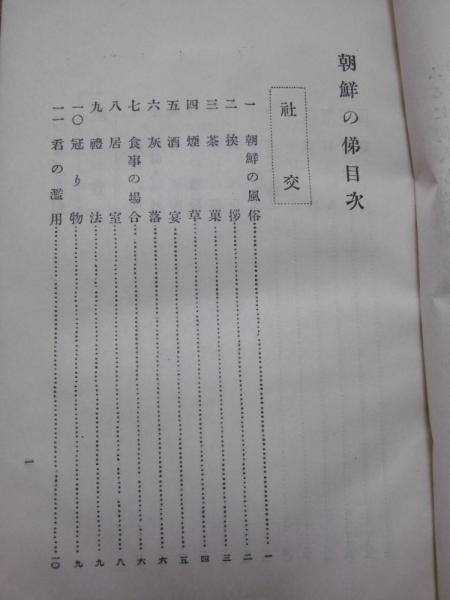 朝鮮の俤目次
社交
一 朝鮮の風俗……一
二 挨拶……二
三 茶菓……三
四 煙草……四
五 酒宴……五
六 灰落……六
七 食事の場合……六
八 居室……八
九 禮法……九
一〇 冠り物……九
一一 君の濫用……一〇
一